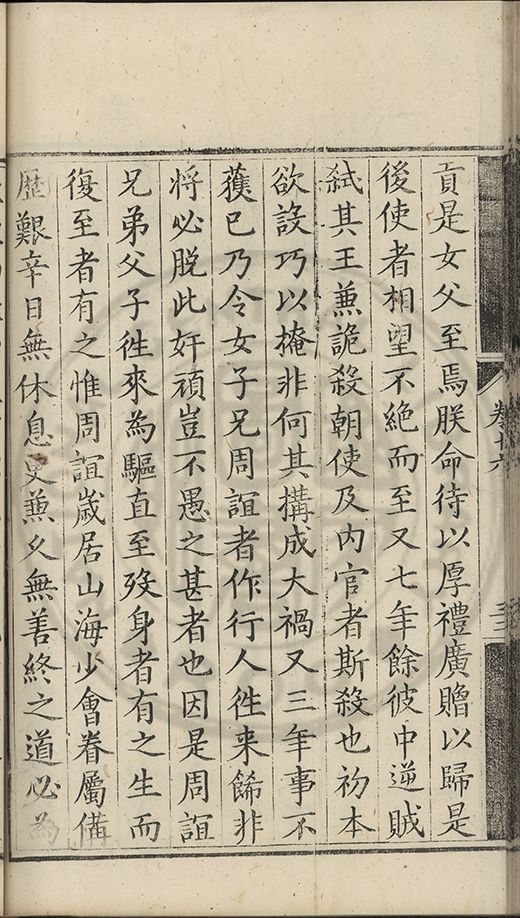 卷十六
三
貢是女父至焉朕命待以厚禮廣贈以歸是
後使者相望不絕而至又七年餘彼中逆賊
弑其王兼詭殺朝使及内官者斯殺也初本
欲設巧以掩非何其搆成大禍又三年事不
獲已乃令女子兄周誼者作行人徃来餙非
将必脱此奸頑豈不愚之甚者也因是周誼
兄弟父子徃來為驅直至歿身者有之生而
復至者有之惟周誼歲居山海少會眷屬俻
歷艱辛日無休息吏兼乆無善終之道必為